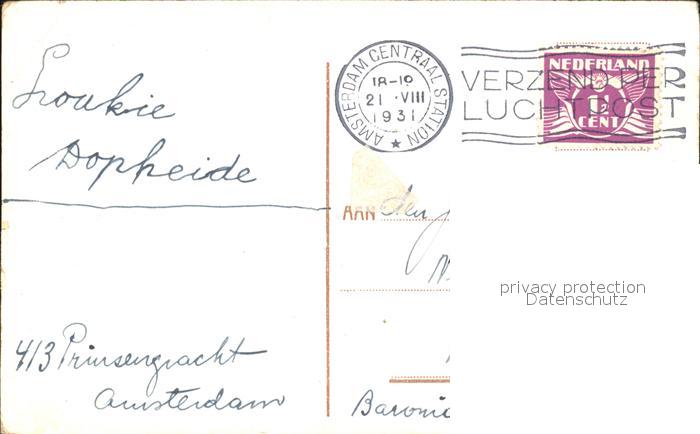 Loukie
Dopheide
413 Prinsengracht
Amsterdam
AMSTERDAM CENTRAAL STATION
18-19
21 · VIII
1931
VERZEND PER
LUCHTPOST
NEDERLAND
1½
CENT
AAN den
Baronie
privacy protection
Datenschutz